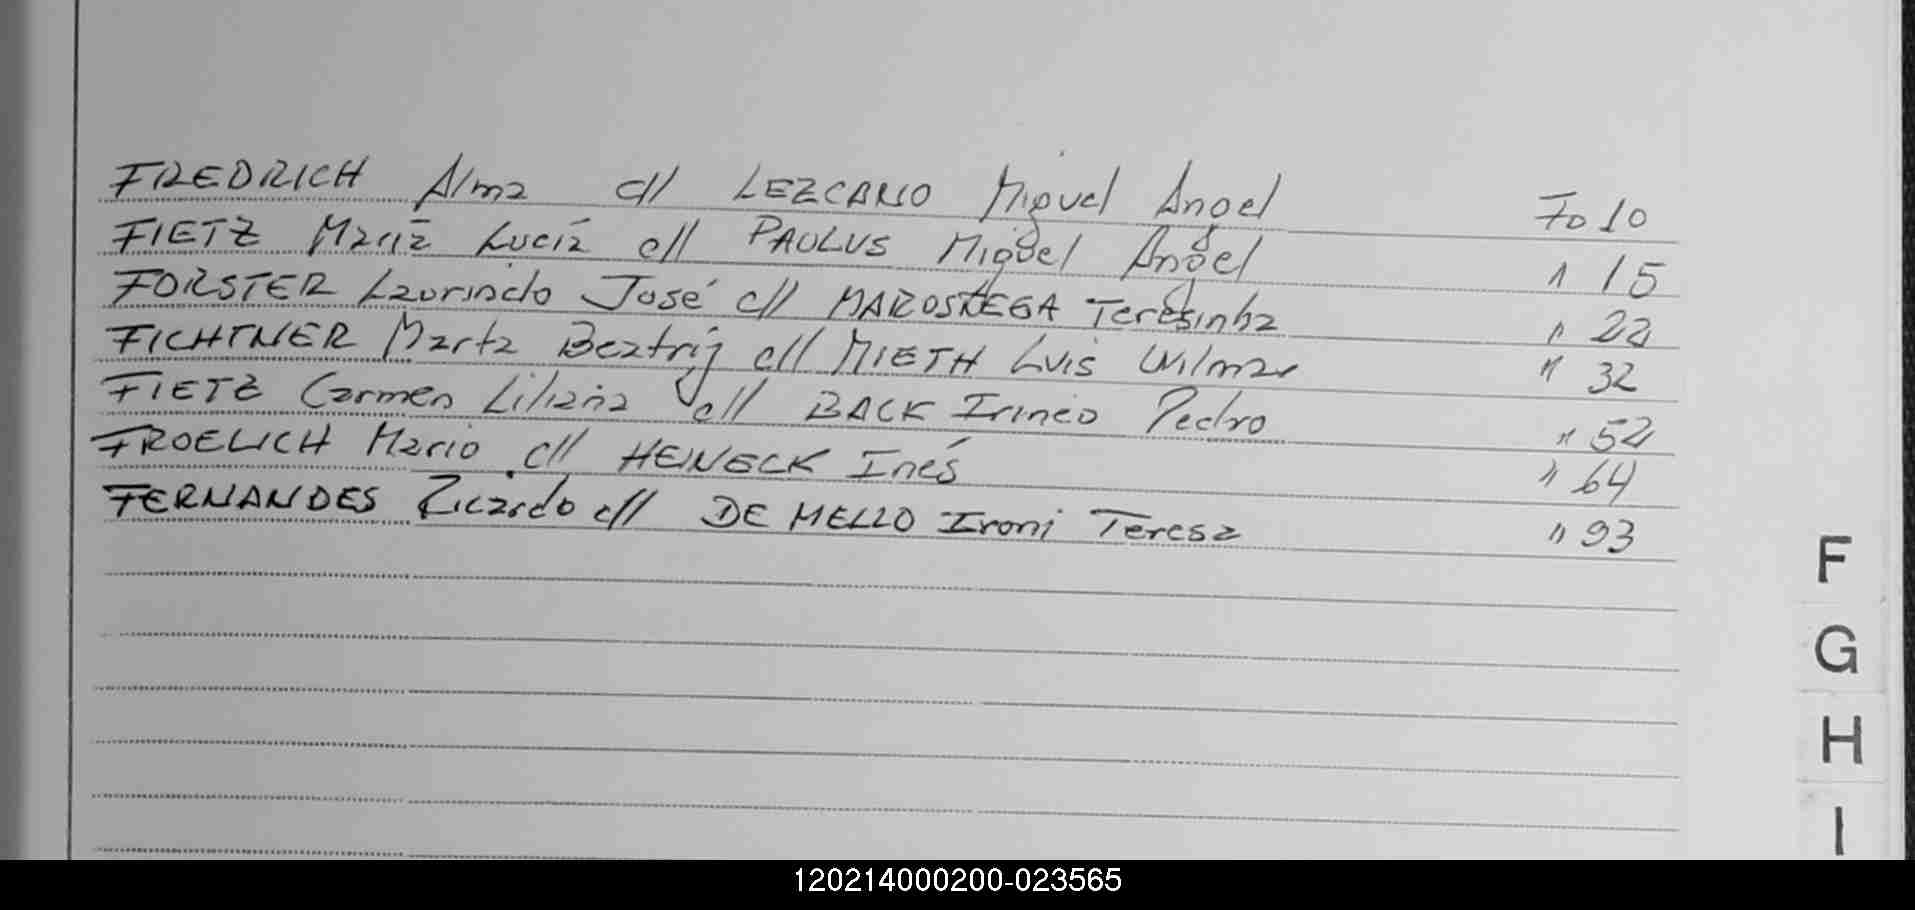 FREDRICH Alma c// LEZCANO Miguel Angel Fo 10
FIETZ María Lucía c// PAULUS Miguel Angel " 15
FORSTER Laurindo José c// MAROSTEGA Teresinha " 22
FICHTNER Marta Beatriz c// MIETH Luis Wilmar " 32
FIETZ Carmen Liliana c// BACK Irineo Pedro " 52
FROELICH Mario c// HEINECK Inés " 64
FERNANDES Ricardo c// DE MELLO Ironi Teresa " 93
F
G
H
I
120214000200-023565